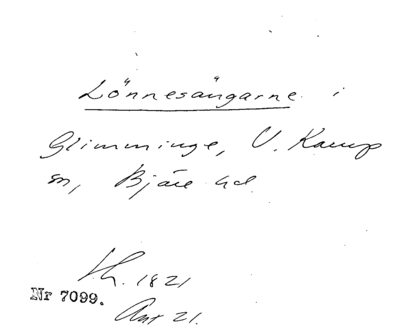 Lönnesängarne i
Glimminge, V. Karup
sn, Bjäre hd
h. 1821
Nr 7099.
Akt 21.